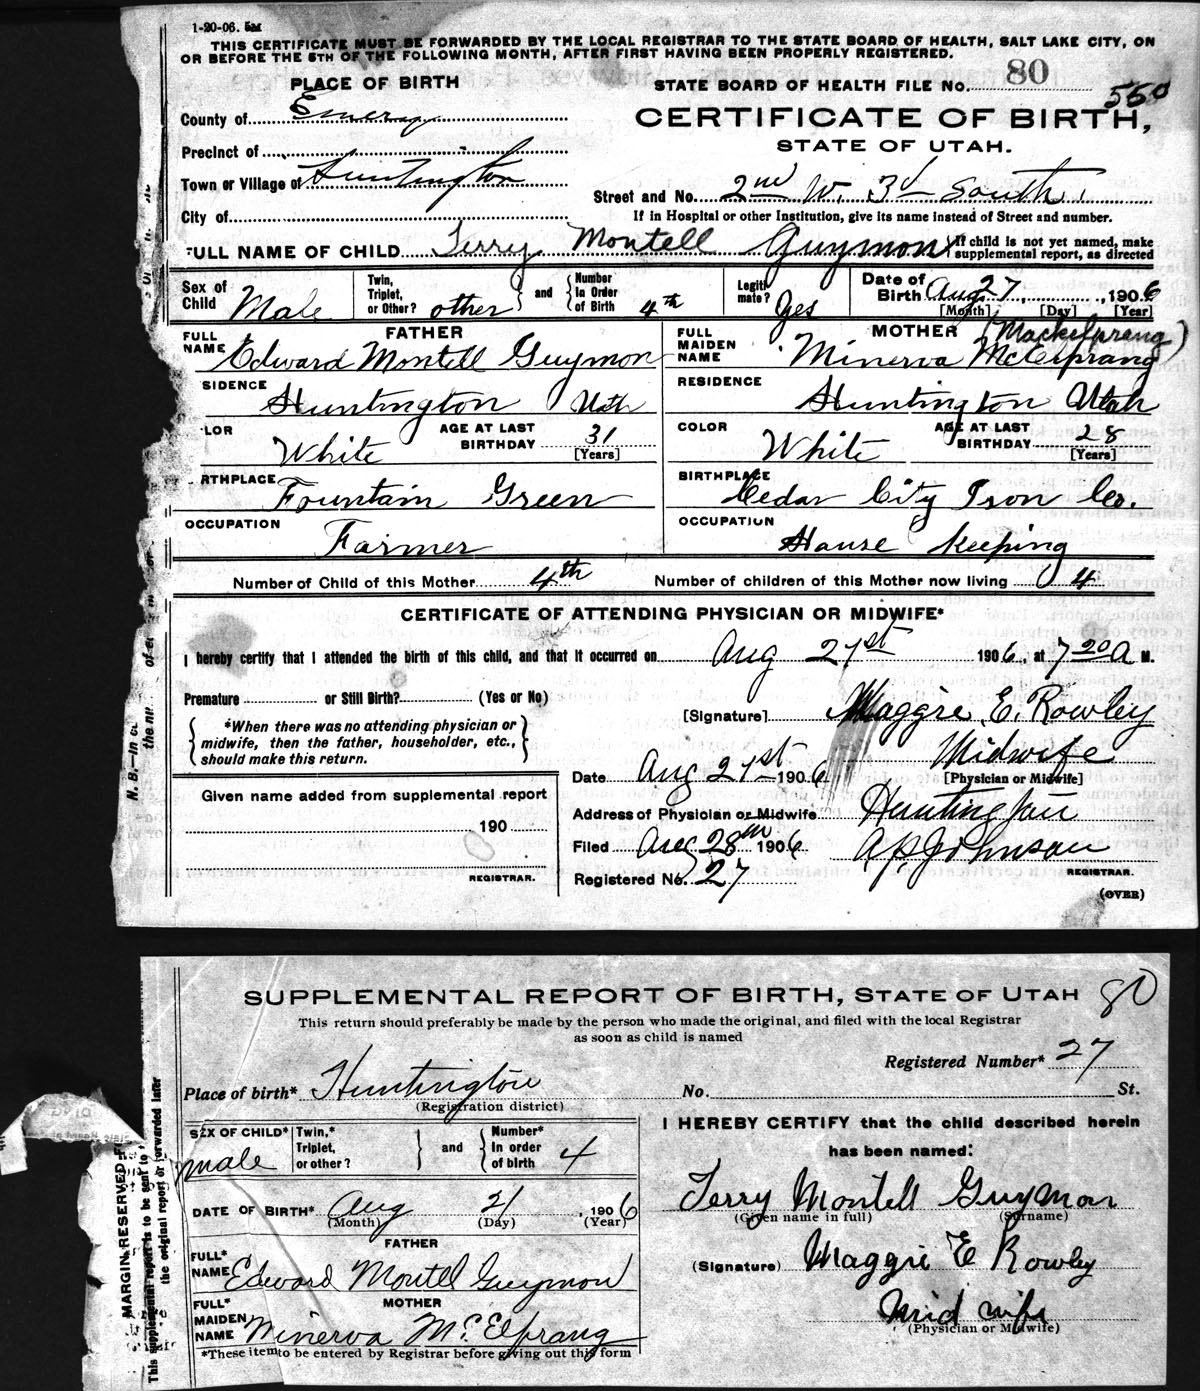 1-20-06.
THIS CERTIFICATE MUST BE FORWARDED BY THE LOCAL REGISTRAR TO THE STATE BOARD OF HEALTH, SALT LAKE CITY, ON
OR BEFORE THE 5TH OF THE FOLLOWING MONTH, AFTER FIRST HAVING BEEN PROPERLY REGISTERED.
PLACE OF BIRTH
STATE BOARD OF HEALTH FILE No. 80
550
County of Emery
CERTIFICATE OF BIRTH,
STATE OF UTAH.
Precinct of
Town or Village of Huntington
Street and No. 2nd W. 3d South
City of
If in Hospital or other Institution, give its name instead of Street and number.
FULL NAME OF CHILD Terry Montell Guymon
If child is not yet named, make supplemental report, as directed
Sex of Child Male
Twin, Triplet, or Other? other and Number In Order of Birth 4th
Legiti mate? yes
Date of Birth Aug 27, 1906
[Month] [Day] [Year]
FATHER
FULL NAME Edward Montell Guymon
MOTHER (Mackelprang)
FULL MAIDEN NAME Minerva McElprang
SIDENCE Huntington Utah
RESIDENCE Huntington Utah
LOR White AGE AT LAST BIRTHDAY 31 [Years]
COLOR White AGE AT LAST BIRTHDAY 28 [Years]
RTHPLACE Fountain Green
BIRTHPLACE Cedar City Iron Co.
OCCUPATION Farmer
OCCUPATION House keeping
Number of Child of this Mother 4th Number of children of this Mother now living 4
CERTIFICATE OF ATTENDING PHYSICIAN OR MIDWIFE*
I hereby certify that I attended the birth of this child, and that it occurred on Aug 21st 1906, at 7 20 A M.
Premature or Still Birth? (Yes or No)
[Signature] Maggie E. Rowley
*When there was no attending physician or
midwife, then the father, householder, etc.,
should make this return.
Midwife
[Physician or Midwife]
Date Aug 21st 1906
Given name added from supplemental report
190
REGISTRAR.
Address of Physician or Midwife Huntington
Filed Aug 28th 1906 A P Johnson
REGISTRAR.
Registered No. 27
(OVER)
N. B.—In c
SUPPLEMENTAL REPORT OF BIRTH, STATE OF UTAH 80
This return should preferably be made by the person who made the original, and filed with the local Registrar
as soon as child is named
Registered Number* 27
Place of birth* Huntington
(Registration district)
No. St.
SEX OF CHILD* male
Twin,* Triplet, or other? and Number* In order of birth 4
I HEREBY CERTIFY that the child described herein
has been named:
DATE OF BIRTH* Aug 21, 1906
(Month) (Day) (Year)
Terry Montell Guymon
(Given name in full) (Surname)
FATHER
FULL* NAME Edward Montell Guymon
(Signature) Maggie E Rowley
MOTHER
FULL* MAIDEN NAME Minerva McElprang
Mid wife
(Physician or Midwife)
*These item to be entered by Registrar before giving out this form
MARGIN RESERVED F
This supplemental report is to be sent to
the original report or forwarded later